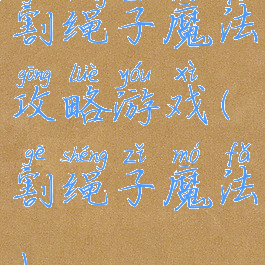 割绳子魔法
gōng lüè yóu xì
攻略游戏(
gē shéng zǐ mó fǎ
割绳子魔法
)